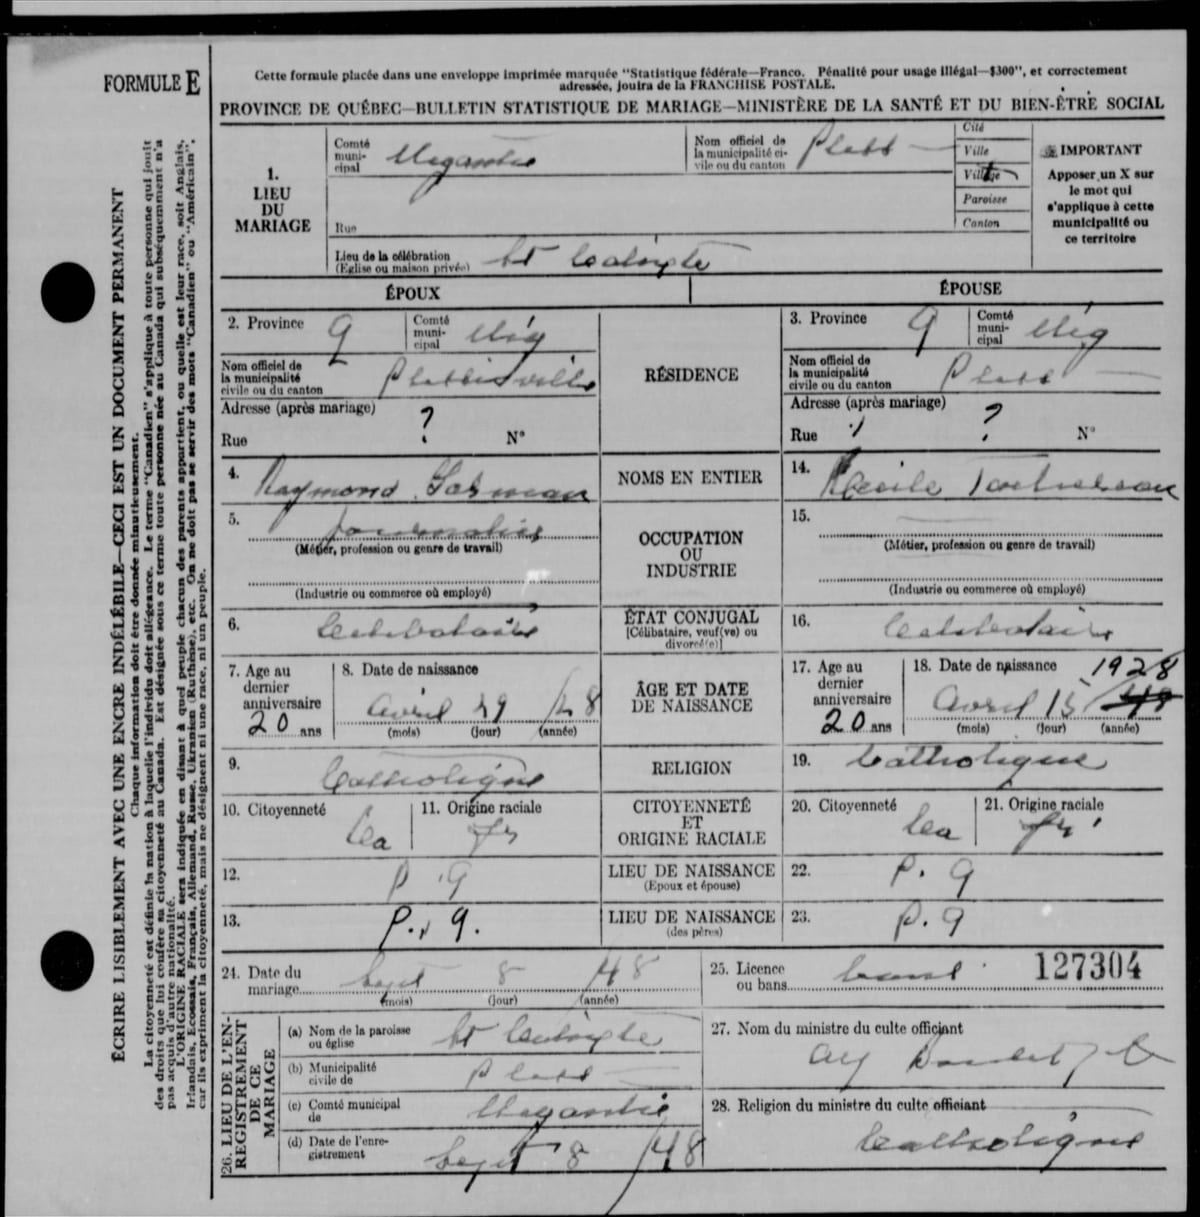 FORMULE E
Cette formule placée dans une enveloppe imprimée marquée "Statistique fédérale—Franco. Pénalité pour usage illégal—$300", et correctement
adressée, jouira de la FRANCHISE POSTALE.
PROVINCE DE QUÉBEC—BULLETIN STATISTIQUE DE MARIAGE—MINISTÈRE DE LA SANTÉ ET DU BIEN-ÊTRE SOCIAL
ÉCRIRE LISIBLEMENT AVEC UNE ENCRE INDÉLÉBILE—CECI EST UN DOCUMENT PERMANENT
Chaque information doit être donnée minutieusement.
La citoyenneté est définie la nation à laquelle l'individu doit allégeance. Le terme "Canadien" s'applique à toute personne qui jouit
des droits que lui confère sa citoyenneté au Canada. Est désignée sous ce terme toute personne née au Canada qui subséquemment n'a
pas acquis d'autre nationalité.
L'ORIGINE RACIALE sera indiquée en disant à quel peuple chacun des parents appartient, ou quelle est leur race, soit Anglais,
Irlandais, Ecossais, Français, Allemand, Russe, Ukranien (Ruthène), etc. On ne doit pas se servir des mots "Canadien" ou "Américain",
car ils expriment la citoyenneté, mais ne désignent ni une race, ni un peuple.
1.
LIEU
DU
MARIAGE
Comté
muni-
cipal Megantic
Nom officiel de
la municipalité ci-
vile ou du canton Pless
Cité
Ville
Village
Paroisse
Canton
IMPORTANT
Apposer un X sur
le mot qui
s'applique à cette
municipalité ou
ce territoire
Rue
Lieu de la célébration
(Eglise ou maison privée) St Calixte
ÉPOUX
ÉPOUSE
2. Province Q Comté
muni-
cipal Még
RÉSIDENCE
3. Province Q Comté
muni-
cipal Még
Nom officiel de
la municipalité
civile ou du canton Plessisville
Nom officiel de
la municipalité
civile ou du canton Pless
Adresse (après mariage) ?
Rue N°
Adresse (après mariage) ?
Rue N°
4. Raymond
NOMS EN ENTIER
14. Cécile
5. Journalier
(Métier, profession ou genre de travail)
(Industrie ou commerce où employé)
OCCUPATION
OU
INDUSTRIE
15.
(Métier, profession ou genre de travail)
(Industrie ou commerce où employé)
6. Celibataire
ÉTAT CONJUGAL
[Célibataire, veuf(ve) ou
divorcé(e)]
16. Celibataire
7. Age au
dernier
anniversaire
20 ans
8. Date de naissance
Avril 29 /28
(mois) (jour) (année)
ÂGE ET DATE
DE NAISSANCE
17. Age au
dernier
anniversaire
20 ans
18. Date de naissance 1928
Avril 15 /48
(mois) (jour) (année)
9. Catholique
RELIGION
19. Catholique
10. Citoyenneté
Ca
11. Origine raciale
fr
CITOYENNETÉ
ET
ORIGINE RACIALE
20. Citoyenneté
Ca
21. Origine raciale
fr
12. P. Q
LIEU DE NAISSANCE
(Epoux et épouse)
22. P. Q
13. P. Q.
LIEU DE NAISSANCE
(des pères)
23. P. Q
24. Date du
mariage Sept 8 /48
(mois) (jour) (année)
25. Licence
ou bans bans
127304
26. LIEU DE L'EN-
REGISTREMENT
DE CE
MARIAGE
(a) Nom de la paroisse
ou église St Calixte
(b) Municipalité
civile de Pless
(c) Comté municipal
de Megantic
(d) Date de l'enre-
gistrement Sept 8 /48
27. Nom du ministre du culte officiant
28. Religion du ministre du culte officiant
Catholique